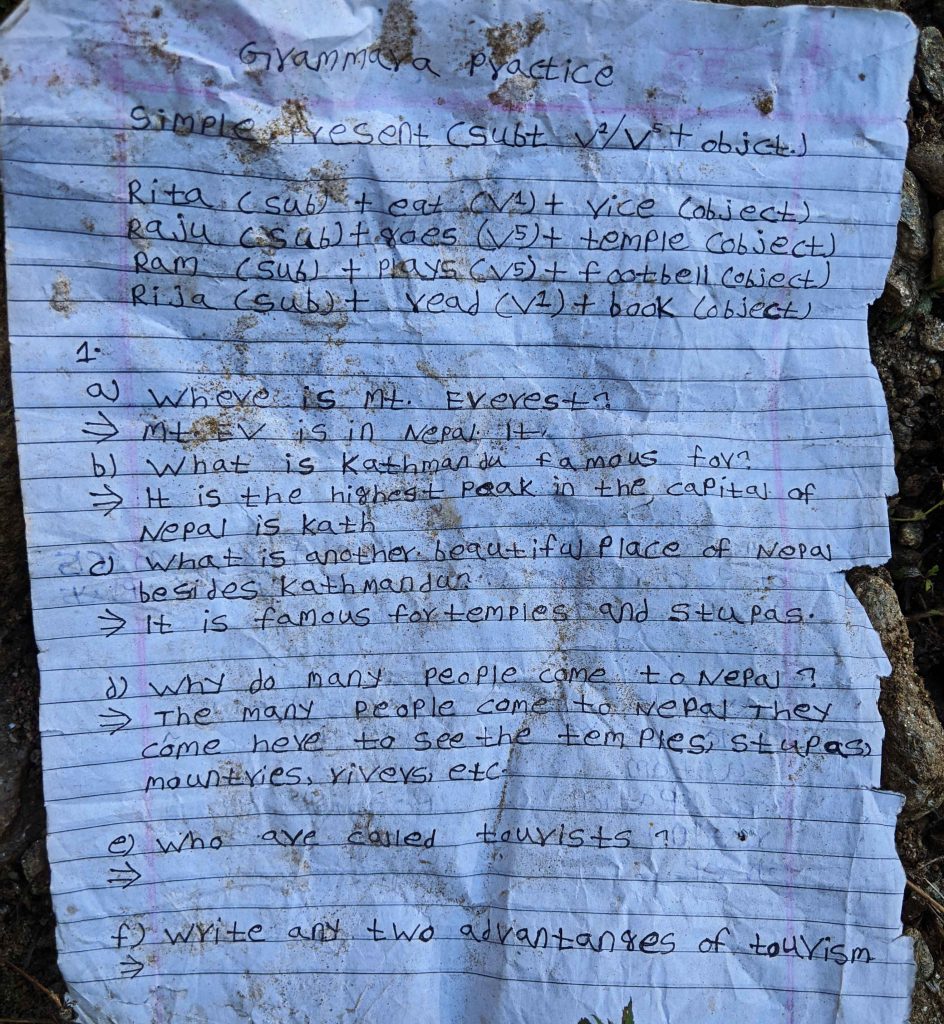 Grammara practice
Simple Present (subt V²/V⁵ + objct.)
Rita (sub) + eat (V1) + vice (object)
Raju (sub) + goes (V5) + temple (object)
Ram (sub) + plays (V5) + footbell (object)
Rija (sub) + read (V1) + book (object)
1.
a) Where is Mt. Everest?
⇒ Mt EV is in Nepal It
b) What is Kathmandu famous for?
⇒ It is the highest peak in the capital of
Nepal is kath
c) What is another beautiful place of Nepal
besides Kathmandu?
⇒ It is famous for temples and stupas.
d) Why do many people come to Nepal?
⇒ The many people come to Nepal They
come here to see the temples, stupas,
mountries, rivers, etc.
e) Who are called tourists?
⇒
f) Write any two advantanges of tourism
⇒